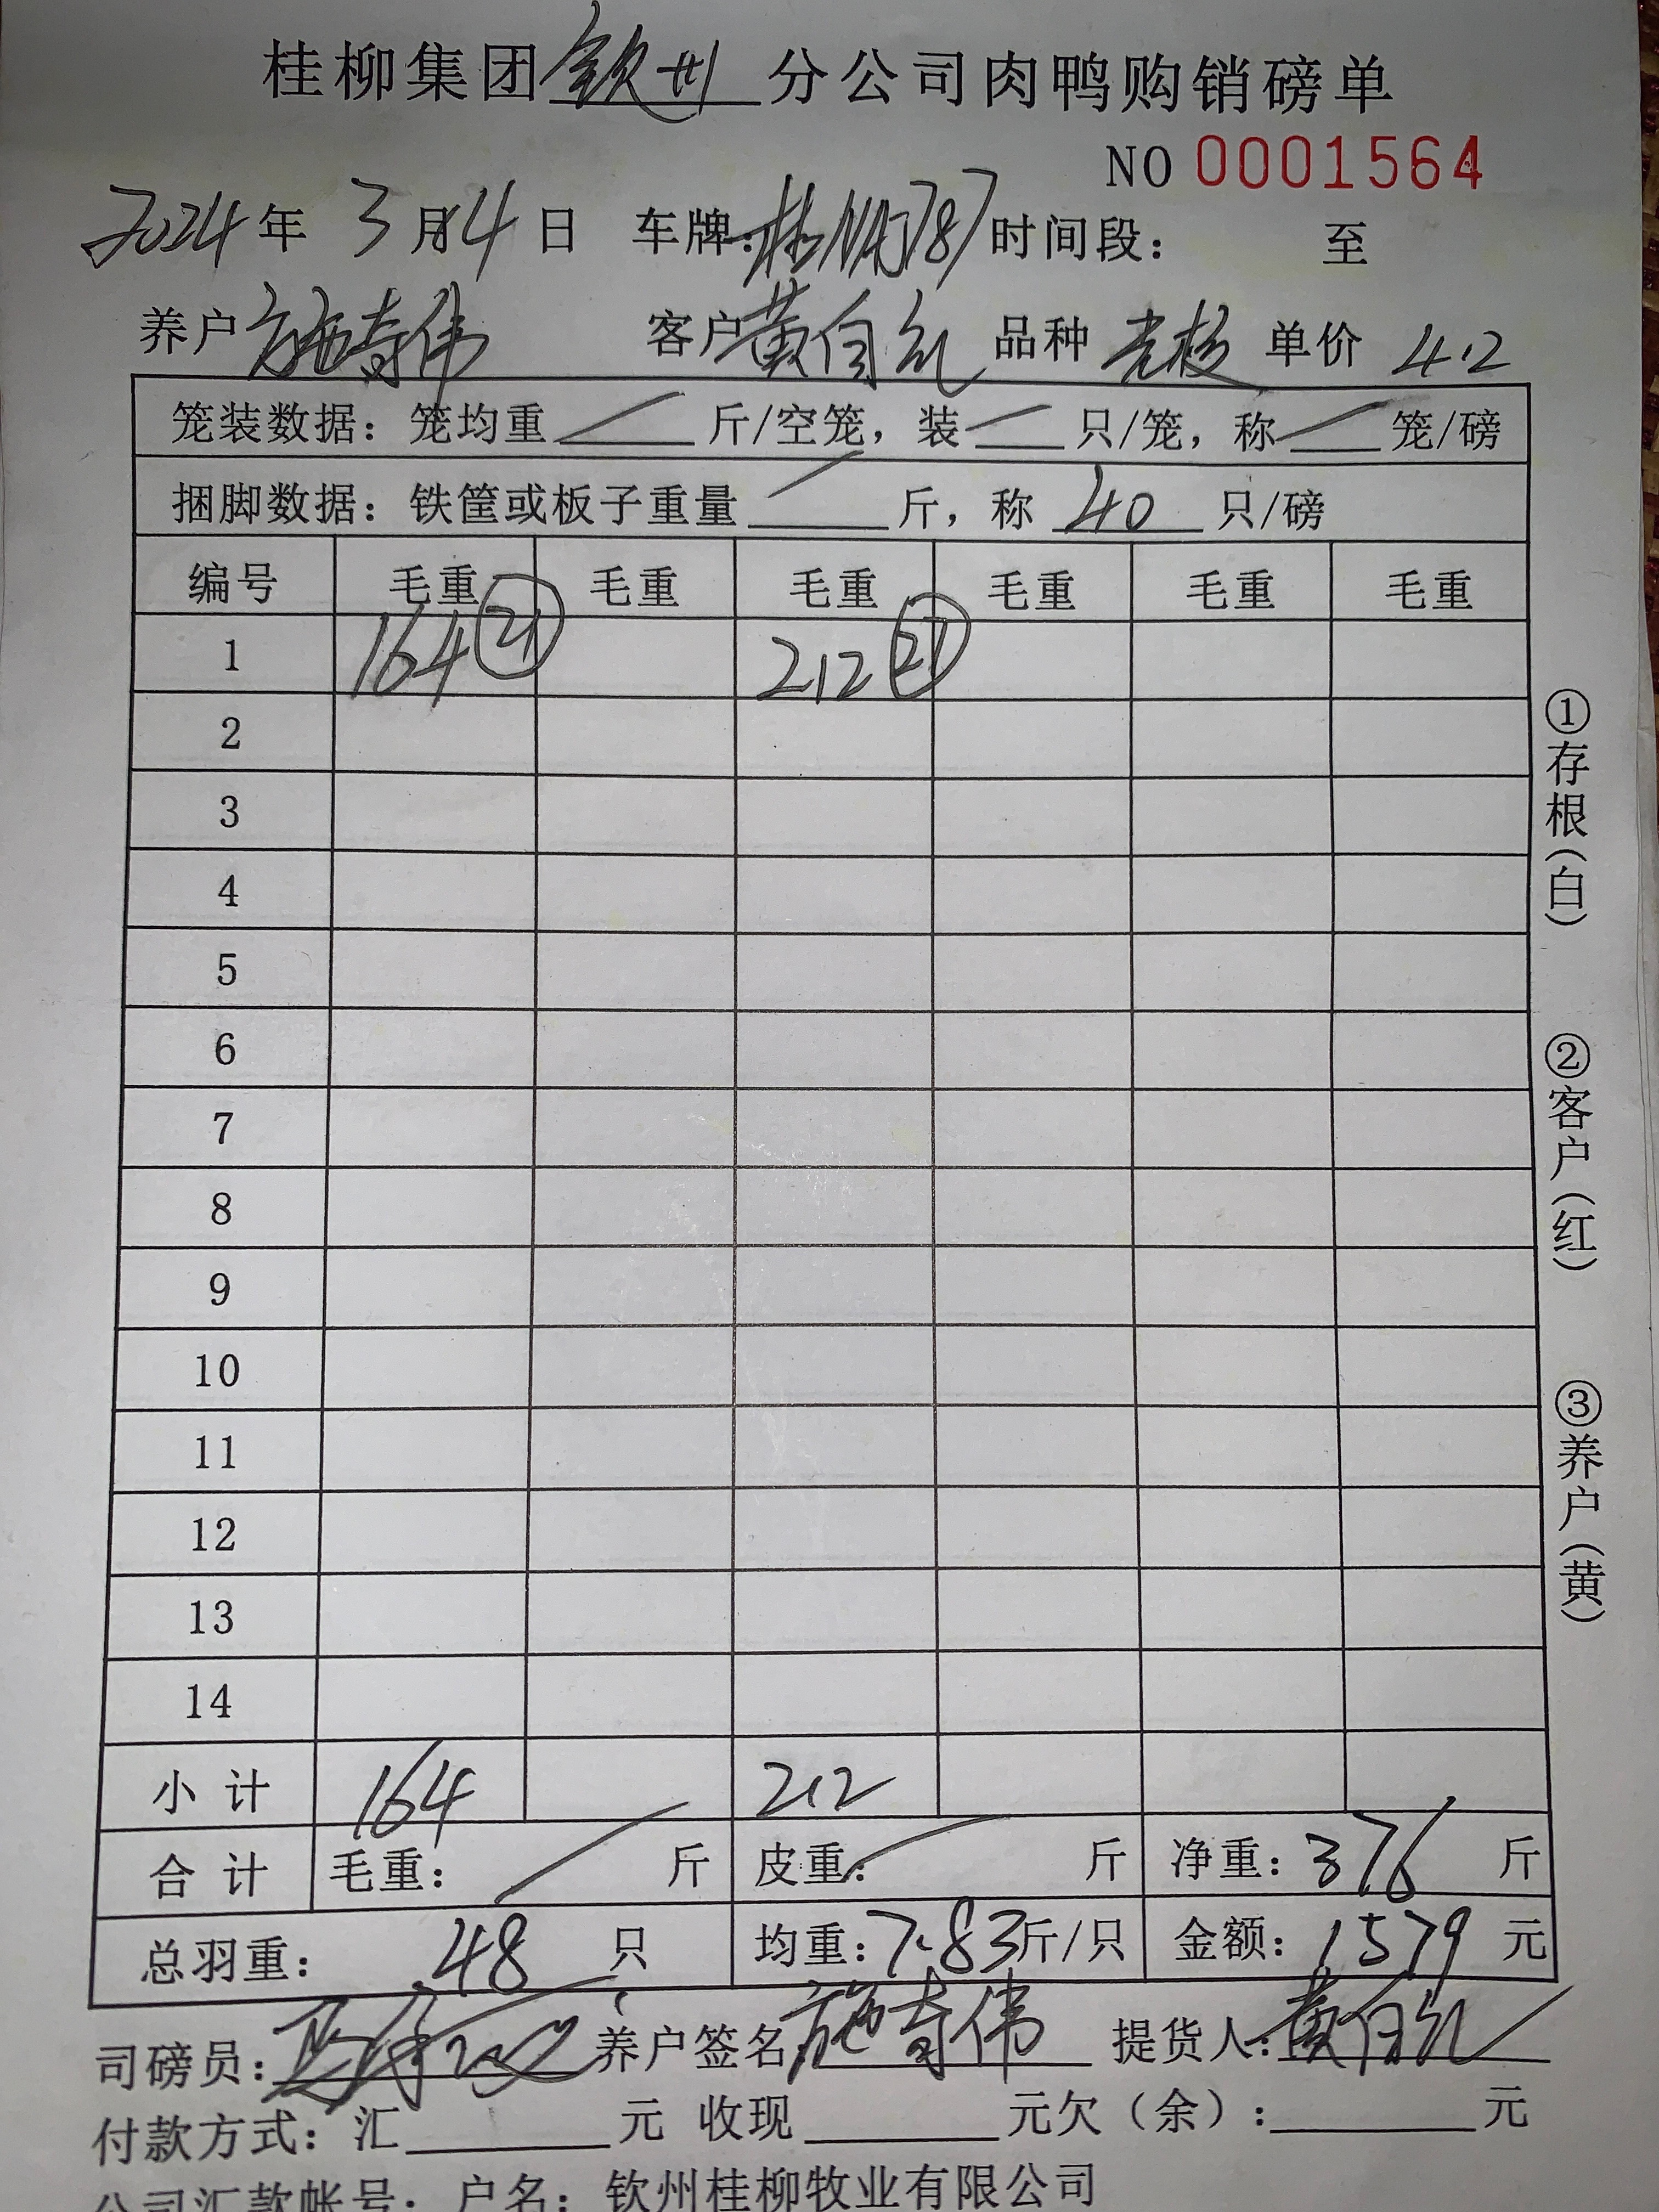 桂柳集团钦州分公司肉鸭购销磅单
NO 0001564
2024年 3月14日 车牌: 时间段: 至
养户 施奇伟 客户 黄自礼 品种 单价 4.2
笼装数据: 笼均重 斤/空笼, 装 只/笼, 称 笼/磅
捆脚数据: 铁筐或板子重量 斤, 称 40 只/磅
编号 毛重 毛重 毛重 毛重 毛重 毛重
1 164 21 212 27
2
3
4
5
6
7
8
9
10
11
12
13
14
小计 164 212
合计 毛重: 斤 皮重: 斤 净重: 376 斤
总羽重: 48 只 均重: 7.83斤/只 金额: 1579 元
司磅员: 养户签名 施奇伟 提货人: 黄自礼
付款方式: 汇 元 收现 元欠(余): 元
公司汇款帐号: 户名: 钦州桂柳牧业有限公司
①存根(白)
②客户(红)
③养户(黄)